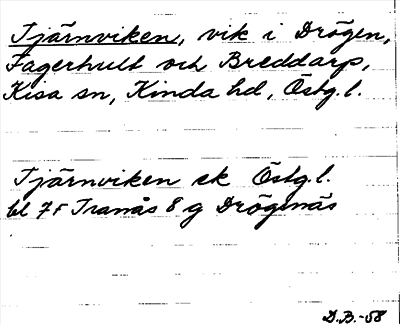 Tjärnviken, vik i Drögen,
Fagerhult och Breddarp,
Kisa sn, Kinda hd, Östg.l.
Tjärnviken ek Östg.l.
bl 7F Tranås 8 g Drögenäs
D.B.-58